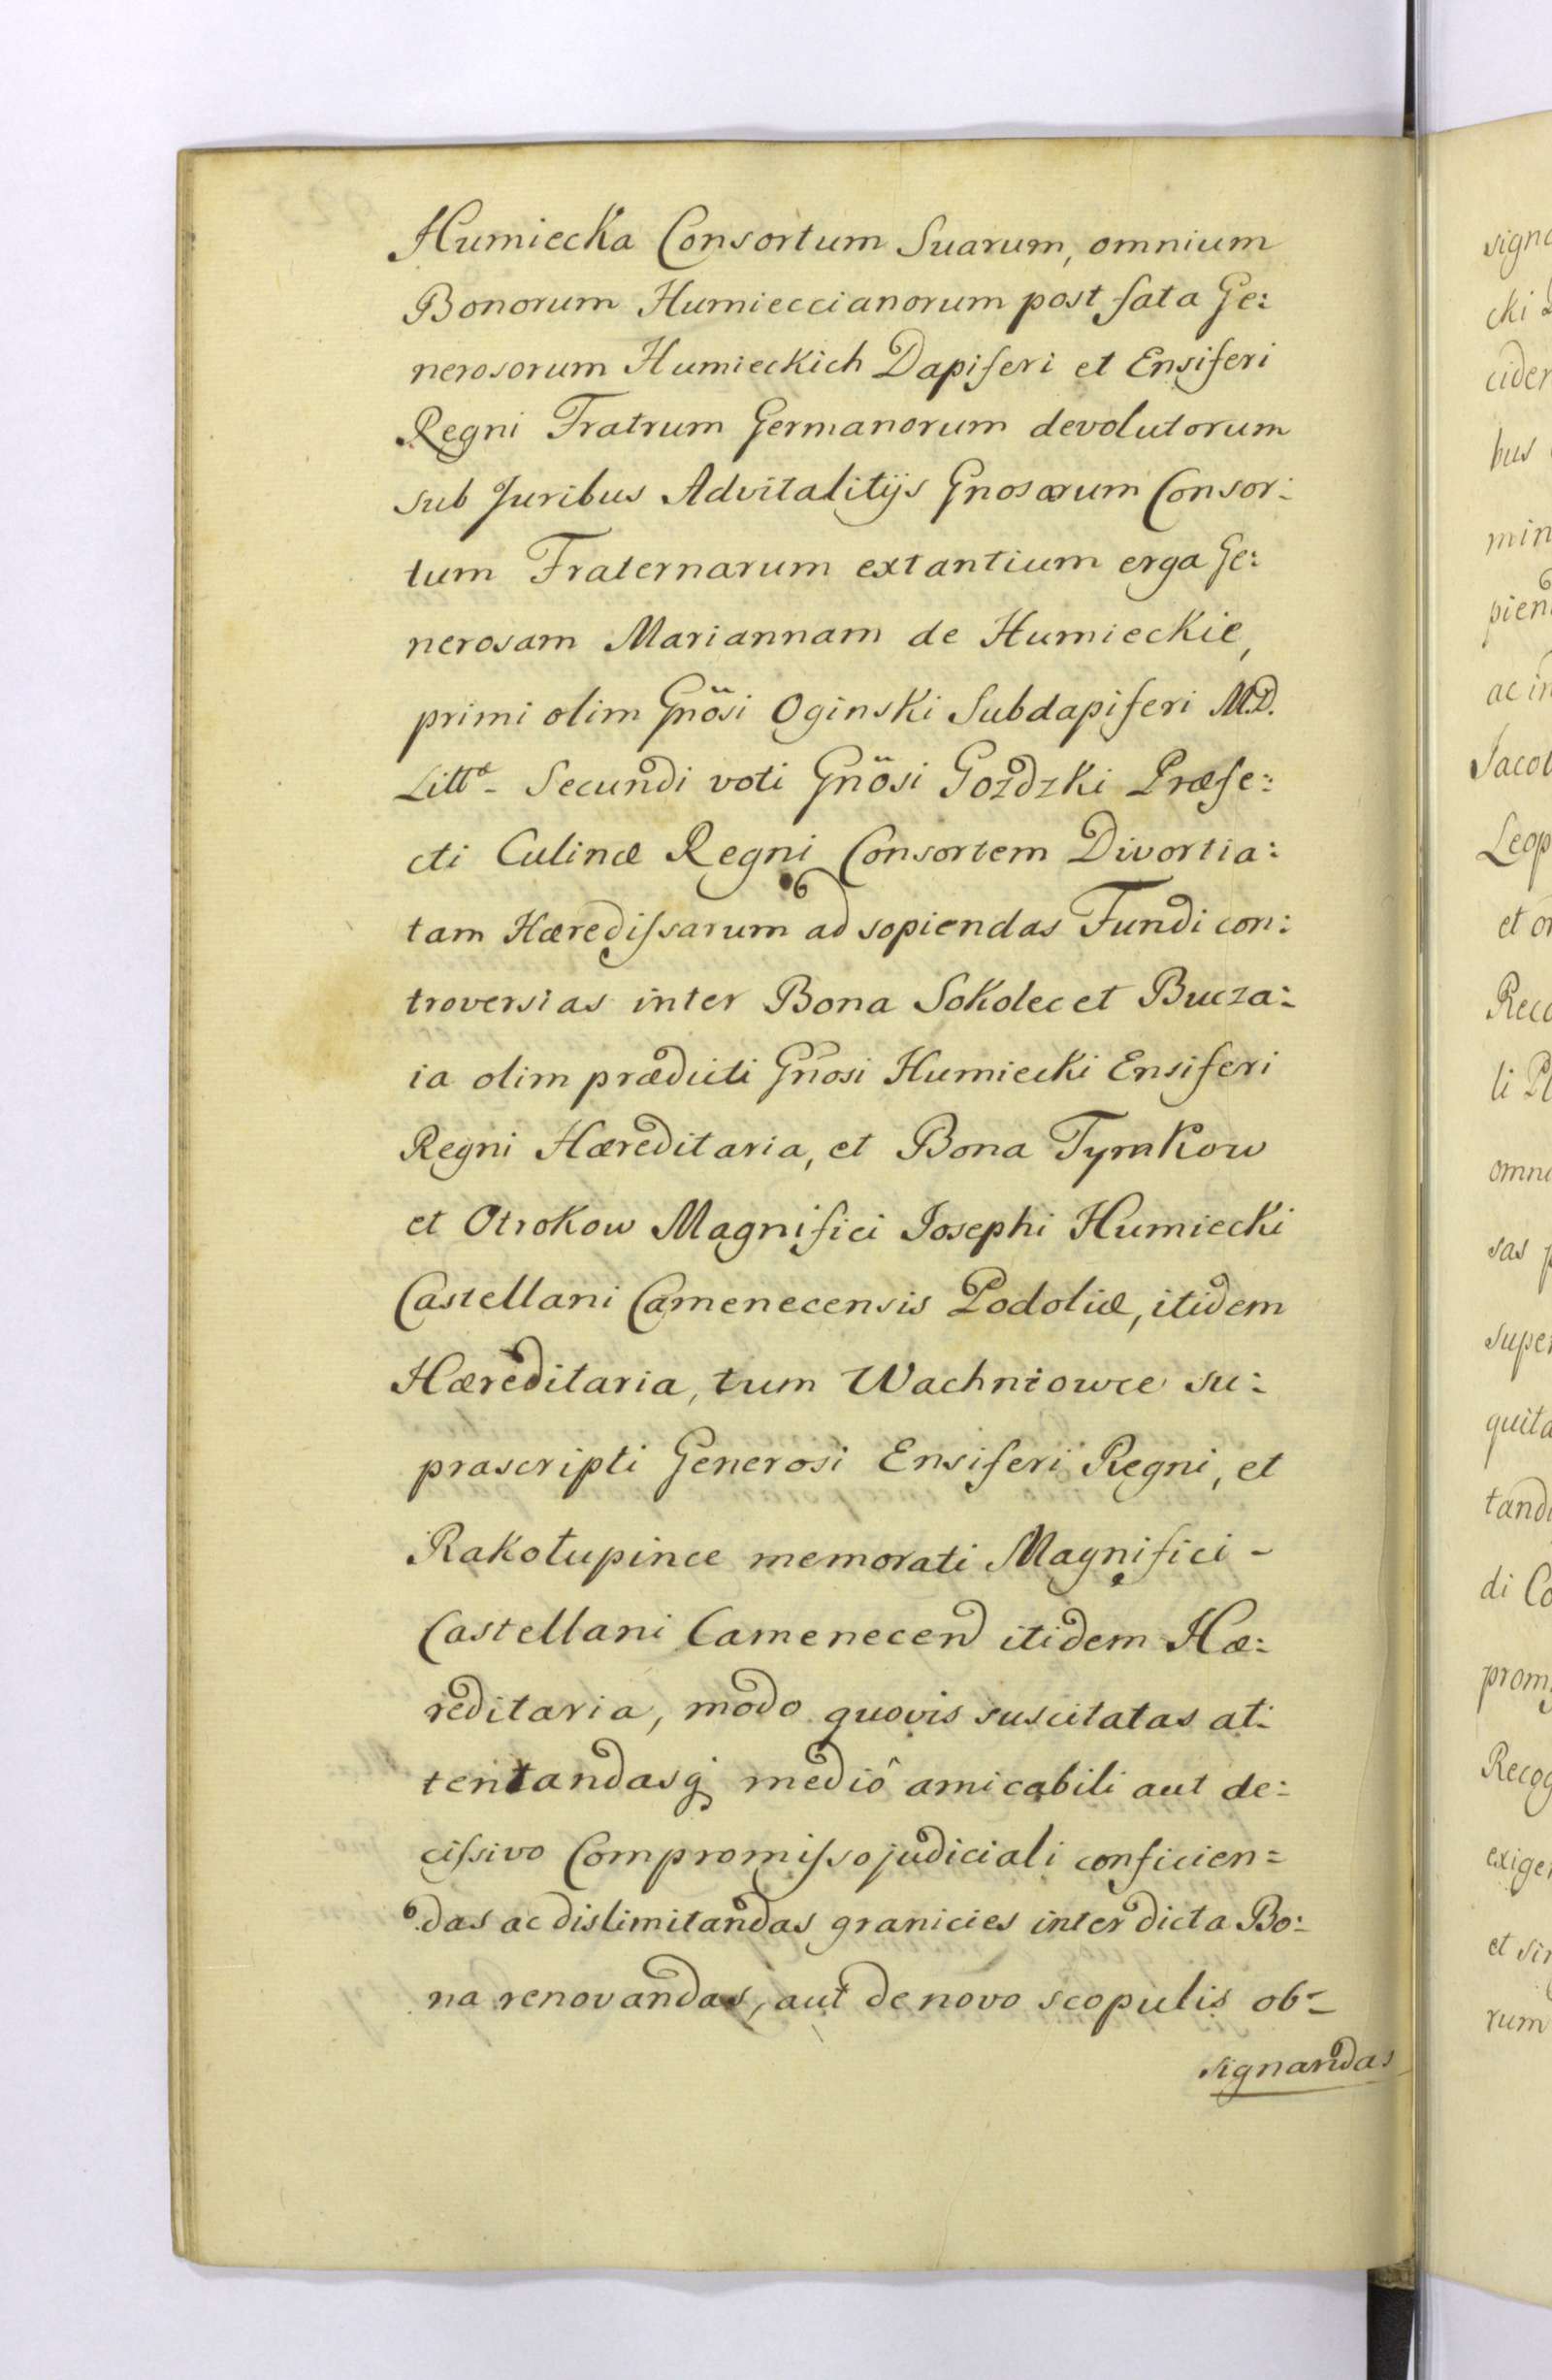 Humiecka Consortum Suarum, omnium
Bonorum Humieccianorum post fata Ge:
nerosorum Humieckich Dapiferi et Ensiferi
Regni Fratrum Germanorum devolutorum
sub Juribus Advitalitijs Gnosarum Consor:
tum Fraternarum extantium erga Ge:
nerosam Mariannam de Humieckie,
primi olim Gnosi Oginski Subdapiferi M.D.
Littæ - Secundi voti Gnosi Gozdzki Præfe:
cti Culinæ Regni Consortem Divortia:
tam Hæredissarum ad sopiendas Fundi con:
troversias inter Bona Sokolec et Bucza:
ia olim prædicti Gnosi Humiecki Ensiferi
Regni Hæreditaria, et Bona Tymkow
et Otrokow Magnifici Josephi Humiecki
Castellani Camenecensis Podoliæ, itidem
Hæreditaria, tum Wachniowce su:
prascripti Generosi Ensiferi Regni, et
Rakołupince memorati Magnifici -
Castellani Camenecen itidem Hæ:
reditaria, modo quovis suscitatas at:
tentandasq medio amicabili aut de:
cissivo Compromisso judiciali conficien=
das ac dislimitandas granicies inter dicta Bo:
na renovandas, aut de novo scopulis ob-
signandas
signa
cki
cider
bus
min
pien
ac in
Jacob
Leop
et o
Reco
li Pl
omn
sas p
super
quita
tand
di Co
prom
Recog
exige
et sin
rum